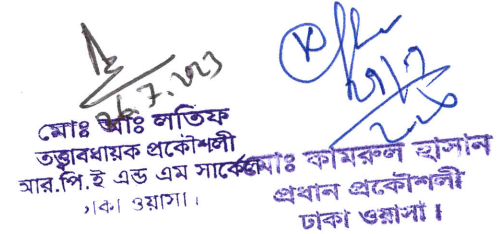 26.7.2023
মোঃ আঃ লতিফ
তত্ত্বাবধায়ক প্রকৌশলী
আর.পি.ই এন্ড এম সার্কেল
ঢাকা ওয়াসা।
মোঃ কামরুল হাসান
প্রধান প্রকৌশলী
ঢাকা ওয়াসা।